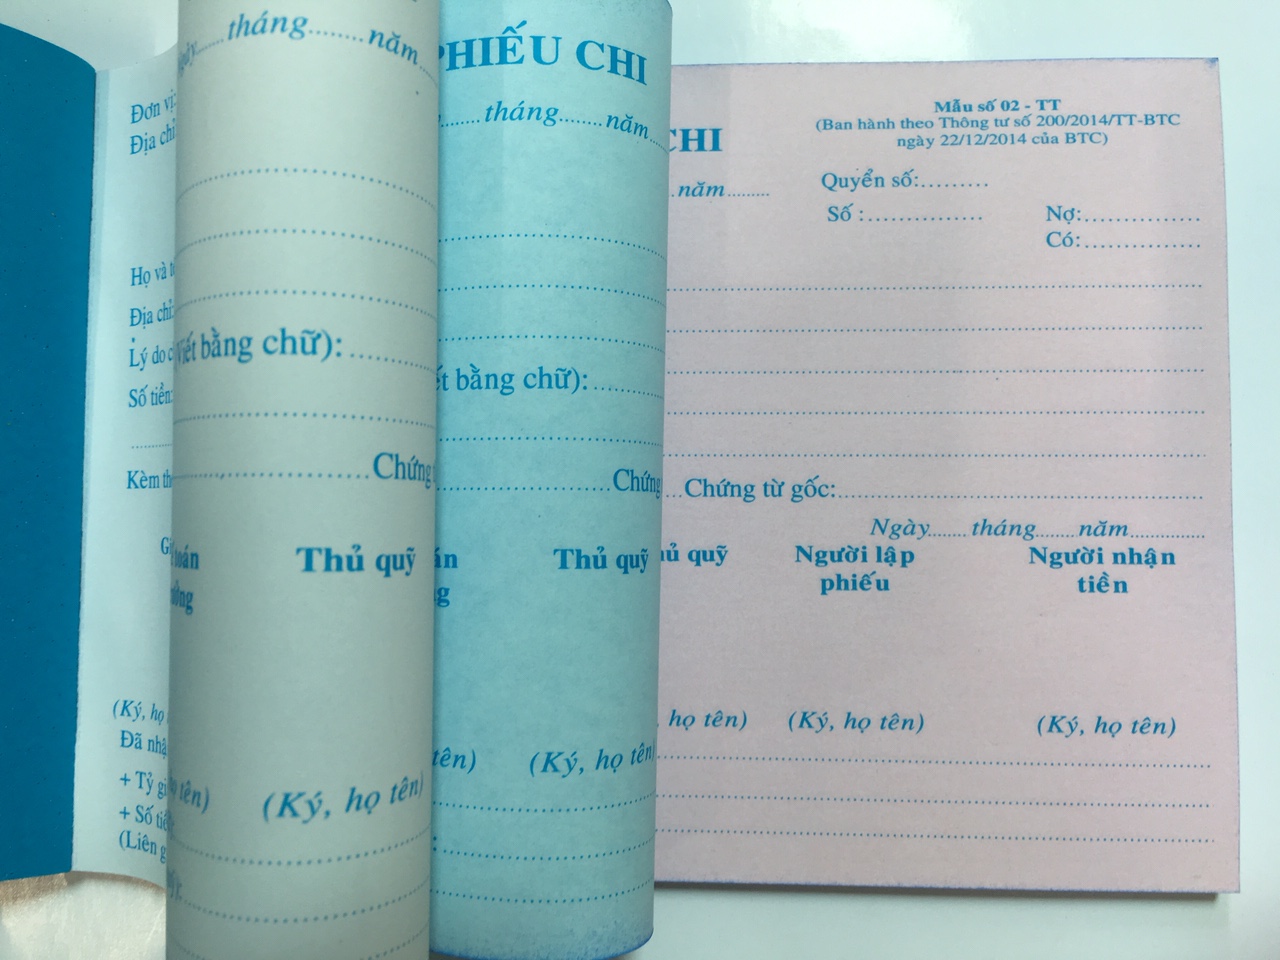 Đơn vị:
Địa chỉ
Họ và
Địa chỉ:
Lý do
Số tiền:
Kèm
(Ký, họ
Đã
+ Tỷ
+ Số
(Liên
tháng........năm
bằng chữ):
Thủ quỹ
(Ký, họ tên)
PHIẾU CHI
tháng........năm
bằng chữ):
Chứng
Thủ quỹ
tên)
(Ký, họ tên)
CHI
năm.........
Mẫu số 02 - TT
(Ban hành theo Thông tư số 200/2014/TT-BTC
ngày 22/12/2014 của BTC)
Quyển số:.........
Số :...............
Nợ:...............
Có:...............
Chứng từ gốc:
Ngày.......tháng.......năm.............
quỹ
Người lập
phiếu
Người nhận
tiền
họ tên)
(Ký, họ tên)
(Ký, họ tên)